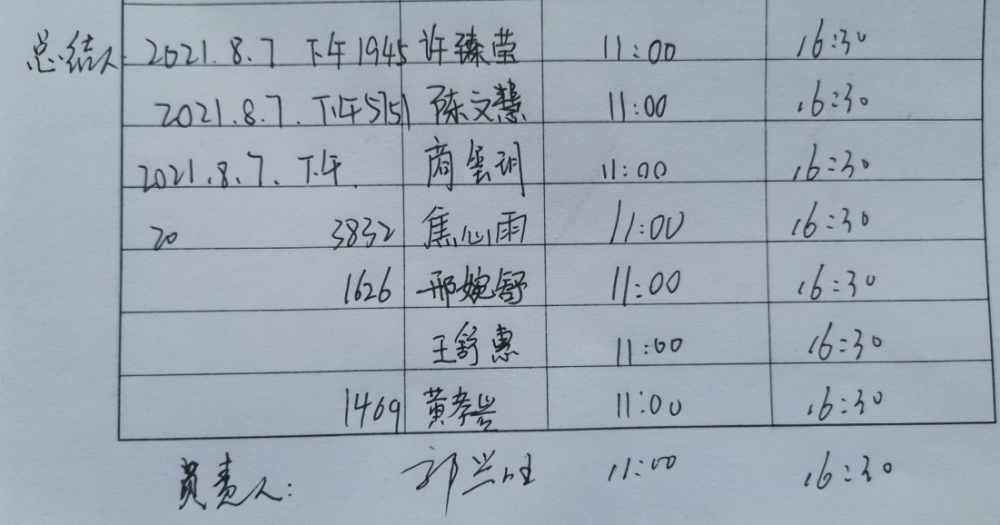 总结人 2021.8.7 下午1945 许臻莹 11:00 16:30
2021.8.7. 下午5751 陈文慧 11:00 16:30
2021.8.7. 下午. 商 训 11:00 16:30
20 3832 焦心雨 11:00 16:30
1626 邢婉舒 11:00 16:30
王舒惠 11:00 16:30
1469 黄孝 11:00 16:30
負责人: 郭兴旺 11:00 16:30